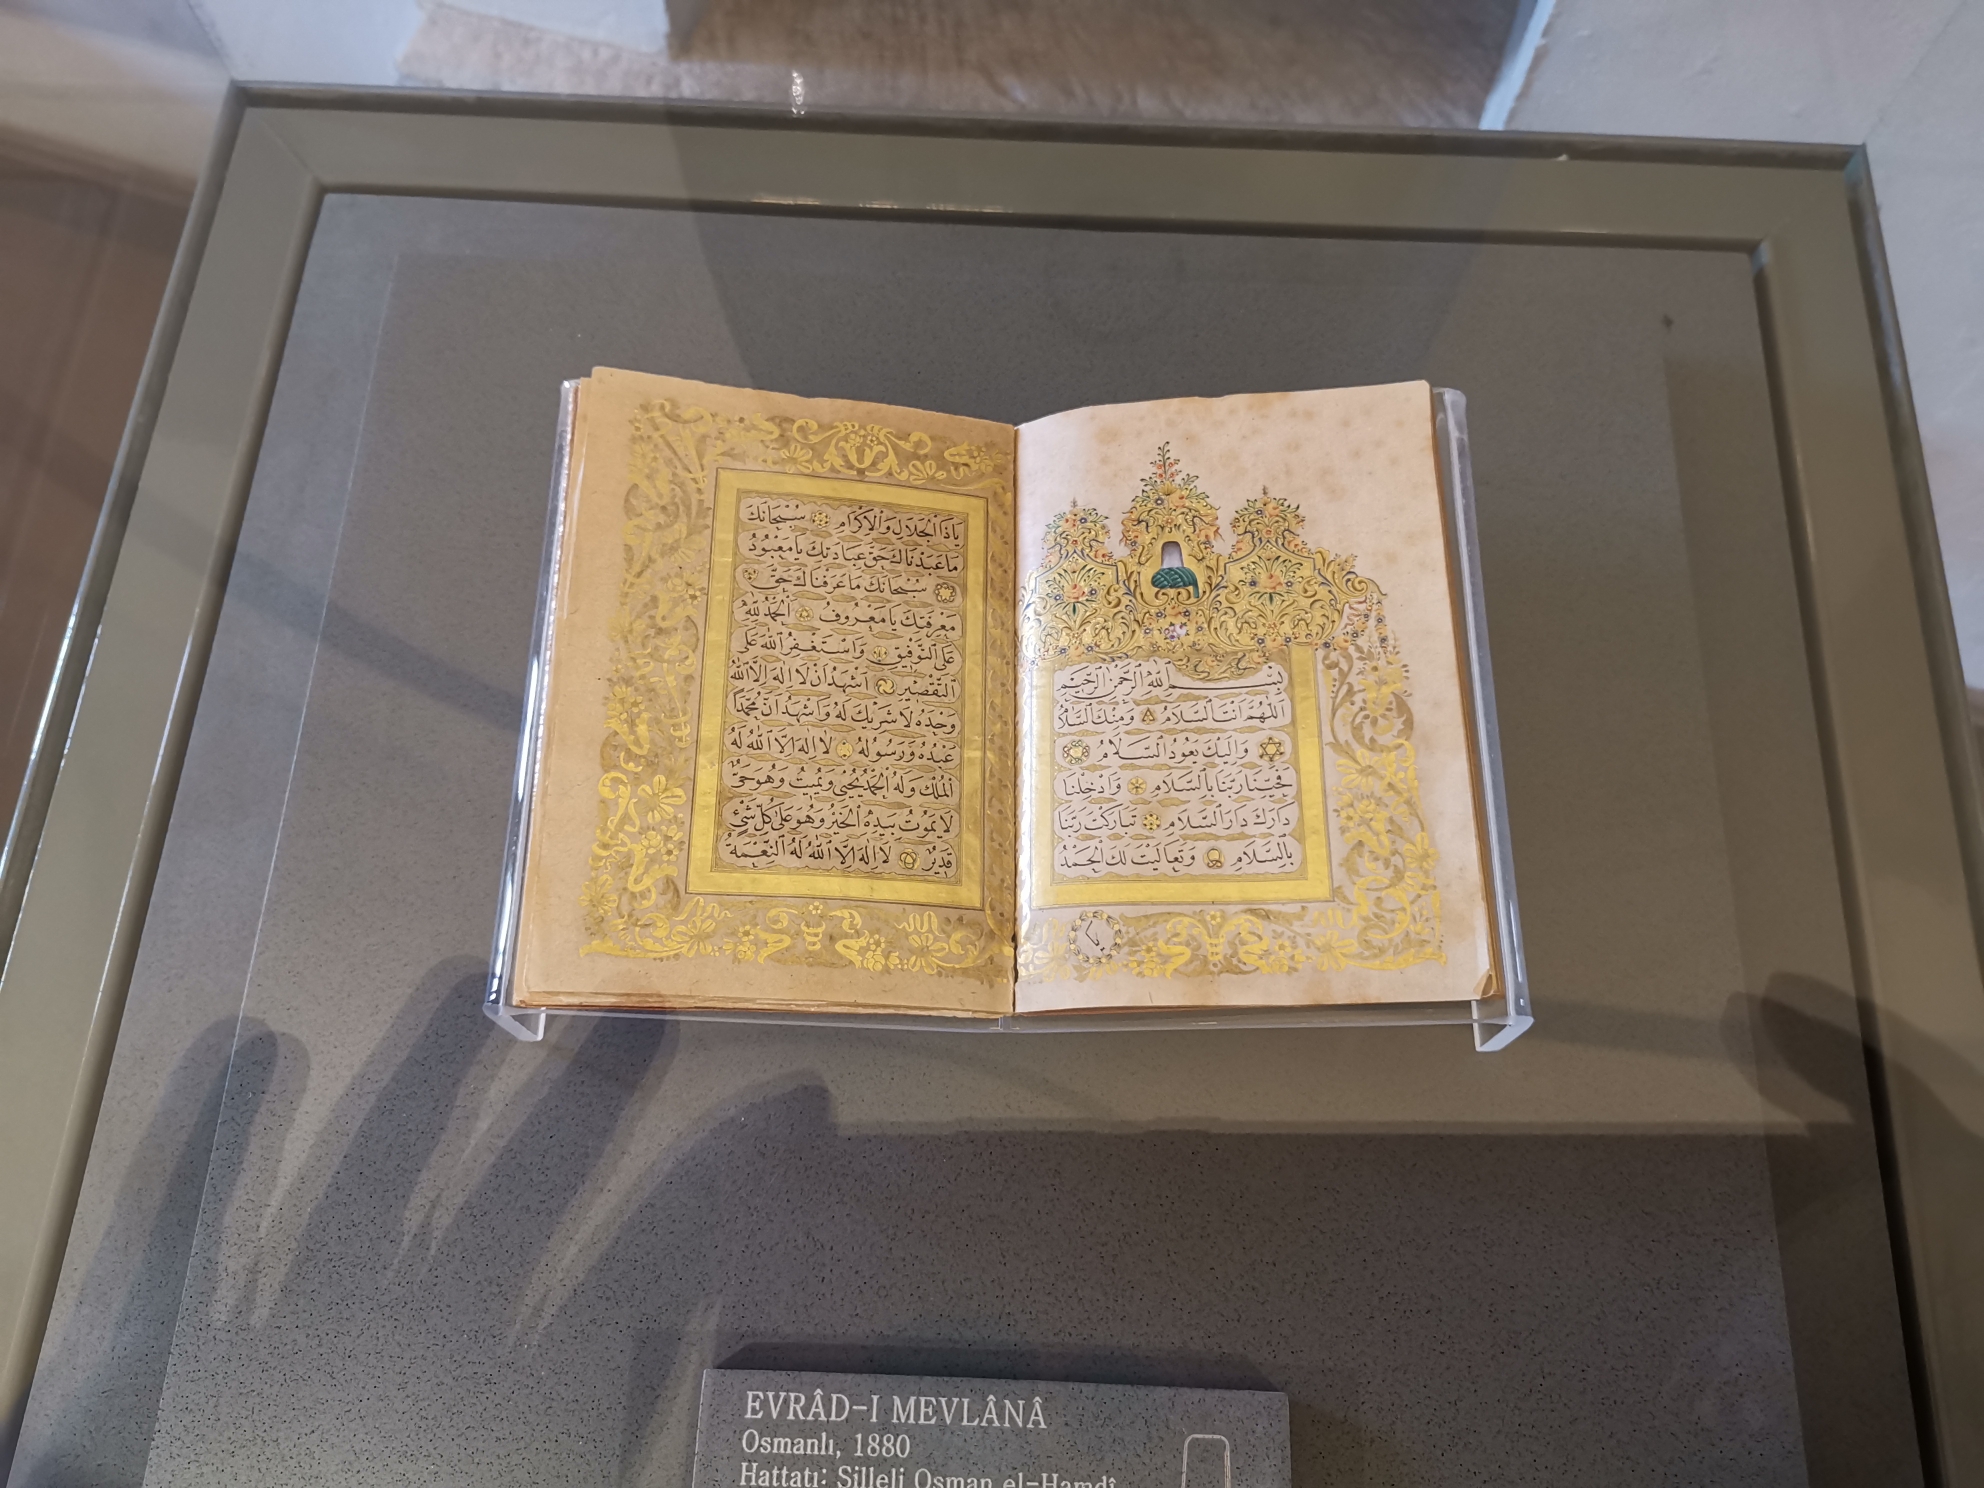 بِسْمِ اللّٰهِ الرَّحْمٰنِ الرَّحِيمِ
اَللّٰهُمَّ اَنْتَ السَّلَامُ وَمِنْكَ السَّلَامُ
وَاِلَيْكَ يَعُودُ السَّلَامُ
فَحَيِّنَا رَبَّنَا بِالسَّلَامِ وَاَدْخِلْنَا
دَارَكَ دَارَ السَّلَامِ تَبَارَكْتَ رَبَّنَا
بِالسَّلَامِ وَتَعَالَيْتَ لَكَ الْحَمْدُ
يَا ذَا الْجَلَالِ وَالْاِكْرَامِ سُبْحَانَكَ
مَا عَبَدْنَاكَ حَقَّ عِبَادَتِكَ يَا مَعْبُودُ
سُبْحَانَكَ مَا عَرَفْنَاكَ حَقَّ
مَعْرِفَتِكَ يَا مَعْرُوفُ اَلْحَمْدُ لِلّٰهِ
عَلَى التَّوْفِيقِ وَاَسْتَغْفِرُ اللّٰهَ عَلَى
التَّقْصِيرِ اَشْهَدُ اَنْ لَا اِلٰهَ اِلَّا اللّٰهُ
وَحْدَهُ لَا شَرِيكَ لَهُ وَاَشْهَدُ اَنَّ مُحَمَّدًا
عَبْدُهُ وَرَسُولُهُ لَا اِلٰهَ اِلَّا اللّٰهُ لَهُ
الْمُلْكُ وَلَهُ الْحَمْدُ يُحْيِي وَيُمِيتُ وَهُوَ حَيٌّ
لَا يَمُوتُ بِيَدِهِ الْخَيْرُ وَهُوَ عَلَى كُلِّ شَيْءٍ
قَدِيرٌ لَا اِلٰهَ اِلَّا اللّٰهُ لَهُ النِّعْمَةُ
EVRÂD-I MEVLÂNÂ
Osmanlı, 1880
Hattatı: Silleli Osman el-Hamdî